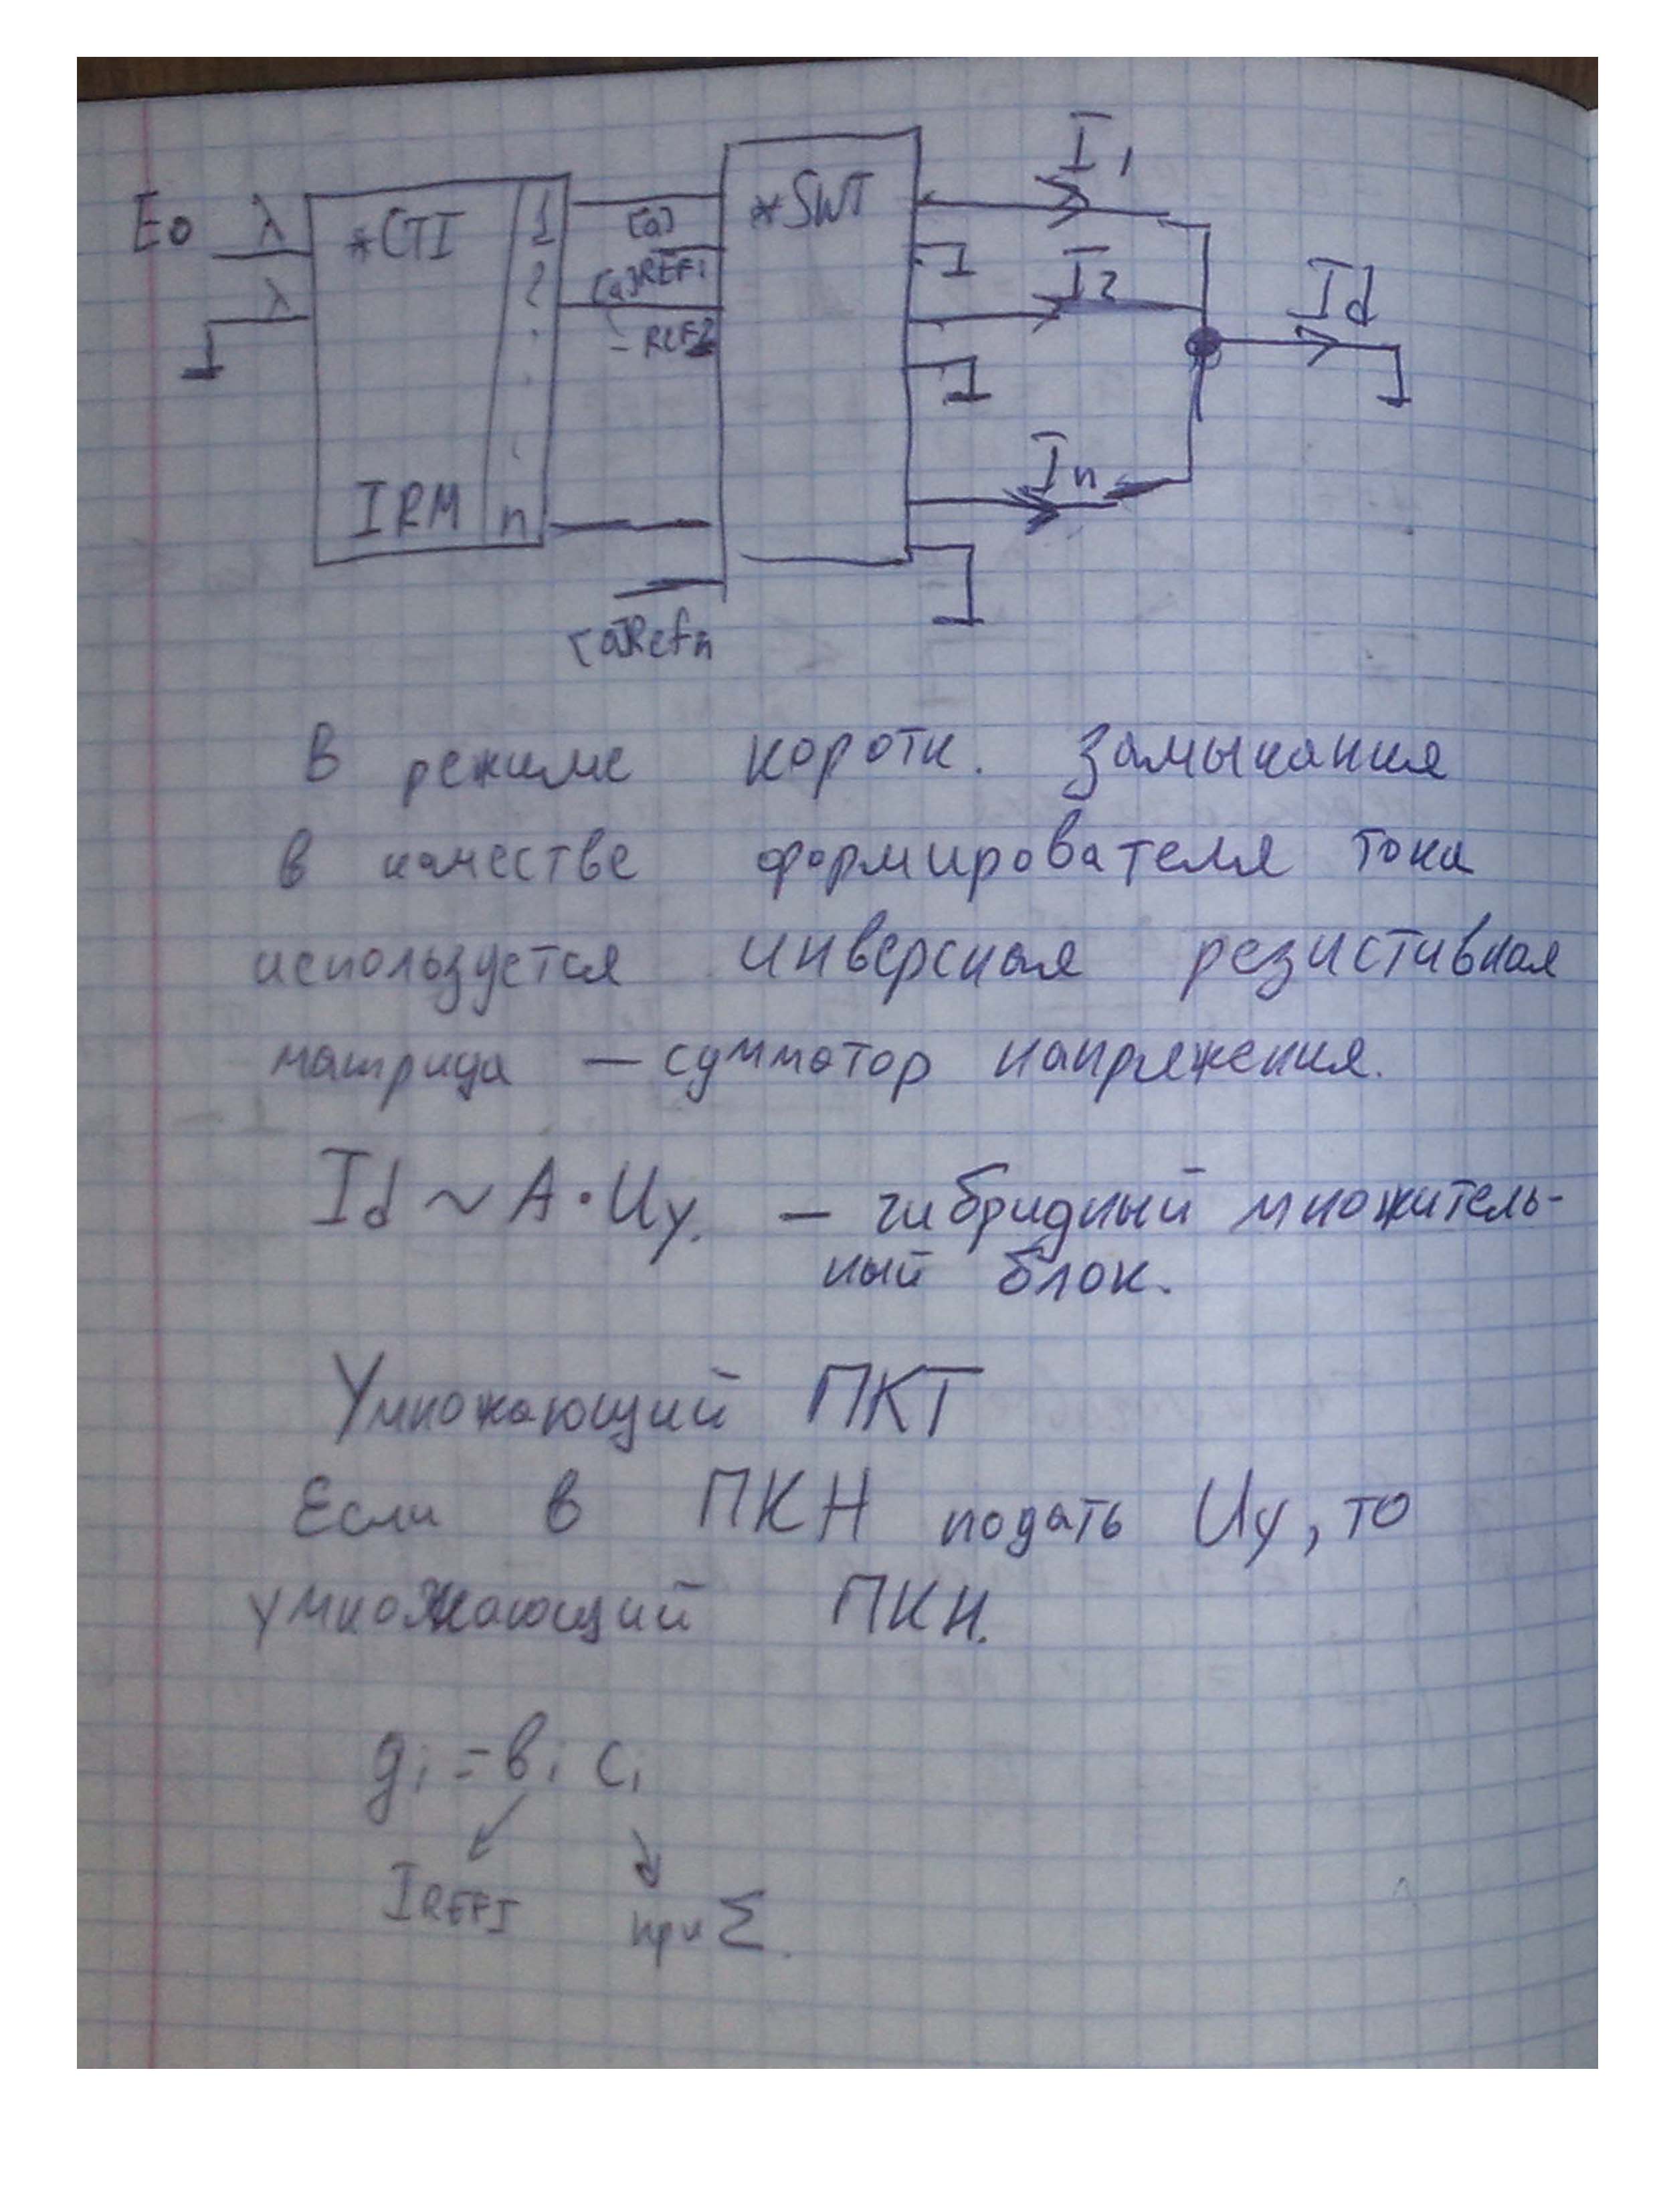 I1
E0 λ *CTI 1 *SWT
[a]
REF1
λ 2 [a] I2 Id
- REF2
In
IRM n
[a]Refn
В режиме коротк. замыкания
в качестве формирователя тока
используется инверсная резистивная
матрица — сумматор напряжения.
Id ~ A · Uy. — гибридный множитель-
ный блок.
Умножающий ПКТ
Если в ПКН подать Uy, то
умножающий ПКН.
gi = bi ci
IREFI при Σ.